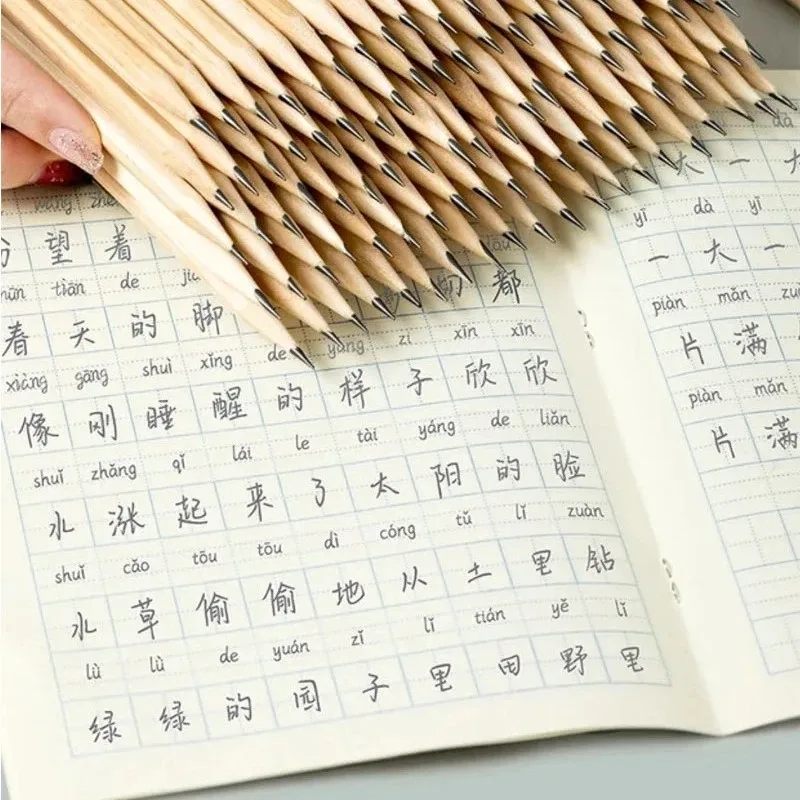 wàng zhe
望着
tiān de
春天的脚 切都
xiàng gāng shuì xǐng de yàng zi xīn xīn
像刚睡醒的样子欣欣
shuǐ zhǎng qǐ lái le tài yáng de liǎn
水涨起来了太阳的脸
shuǐ cǎo tōu tōu dì cóng tǔ lǐ zuàn
水草偷偷地从土里钻
lǜ lǜ de yuán zǐ lǐ tián yě lǐ
绿绿的园子里田野里
dà
一大一大
yī dà yī
一大一
piàn mǎn
片满
piàn mǎn
片满